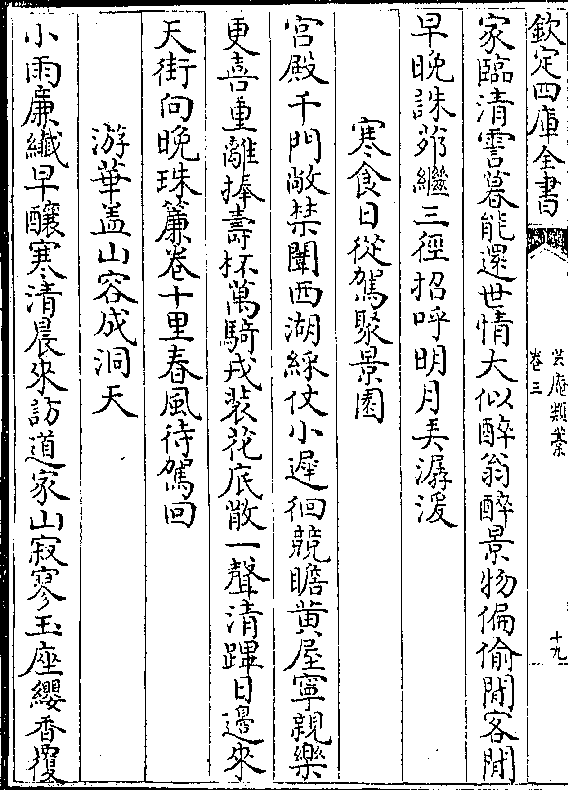 欽定四庫全書
卷三
定庵類藁
十九
家臨清霅暮能還世情大似醉翁醉景物偏偷閒客閒
早晚誅茆繼三徑招呼明月弄潺湲
寒食日從駕聚景園
宮殿千門敞禁闈西湖綵仗小遲徊競瞻黄屋寧親樂
更喜重離捧壽杯萬騎戎裝花底散一聲清蹕日邊來
天街向晚珠簾卷十里春風待駕回
游華盖山容成洞天
小雨廉纖早釀寒清晨來訪道家山寂寥玉座纓香覆